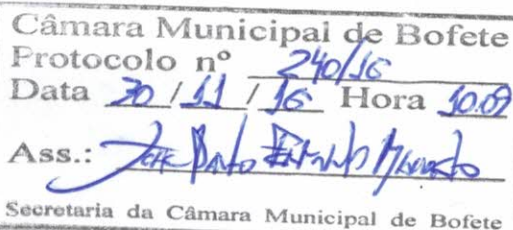 Câmara Municipal de Bofete
Protocolo nº 240/16
Data 30 / 11 / 16 Hora 10.09
Ass.:
Secretaria da Câmara Municipal de Bofete